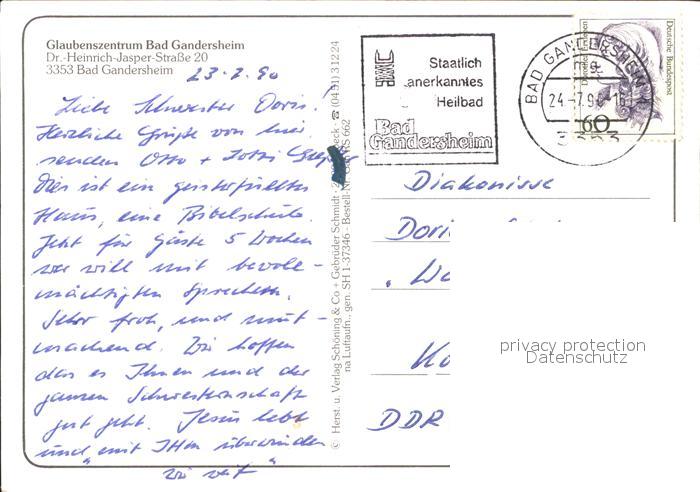 Glaubenszentrum Bad Gandersheim
Dr.-Heinrich-Jasper-Straße 20
3353 Bad Gandersheim
23.7.90
Liebe Schwester Doris.
Herzliche Grüße von hier
senden Otto +
Dies ist ein geisterfülltes
Haus, eine Bibelschule.
Jetzt für Gäste 5 Wochen
wer will mit bevoll-
mächtigten Sprechern.
Sehr froh, und mut-
machend. Wir hoffen
das es Ihnen und der
ganzen Schwesternschaft
gut geht. Jesus lebt
und "mit IHM überwinden
wir weit"
© Herst. u. Verlag Schöning & Co + Gebrüder Schmidt
☎ (04 51) 3 12 24
na Luftaufn., gen. SH 1-37346 - Bestell-Nr.
S 662
Staatlich
anerkanntes
Heilbad
Bad
Gandersheim
BAD GANDERSHEIM
24.-7.90-16
3353
Deutsche Bundespost
60
Diakonisse
Dori
Ko
DDR
privacy protection
Datenschutz